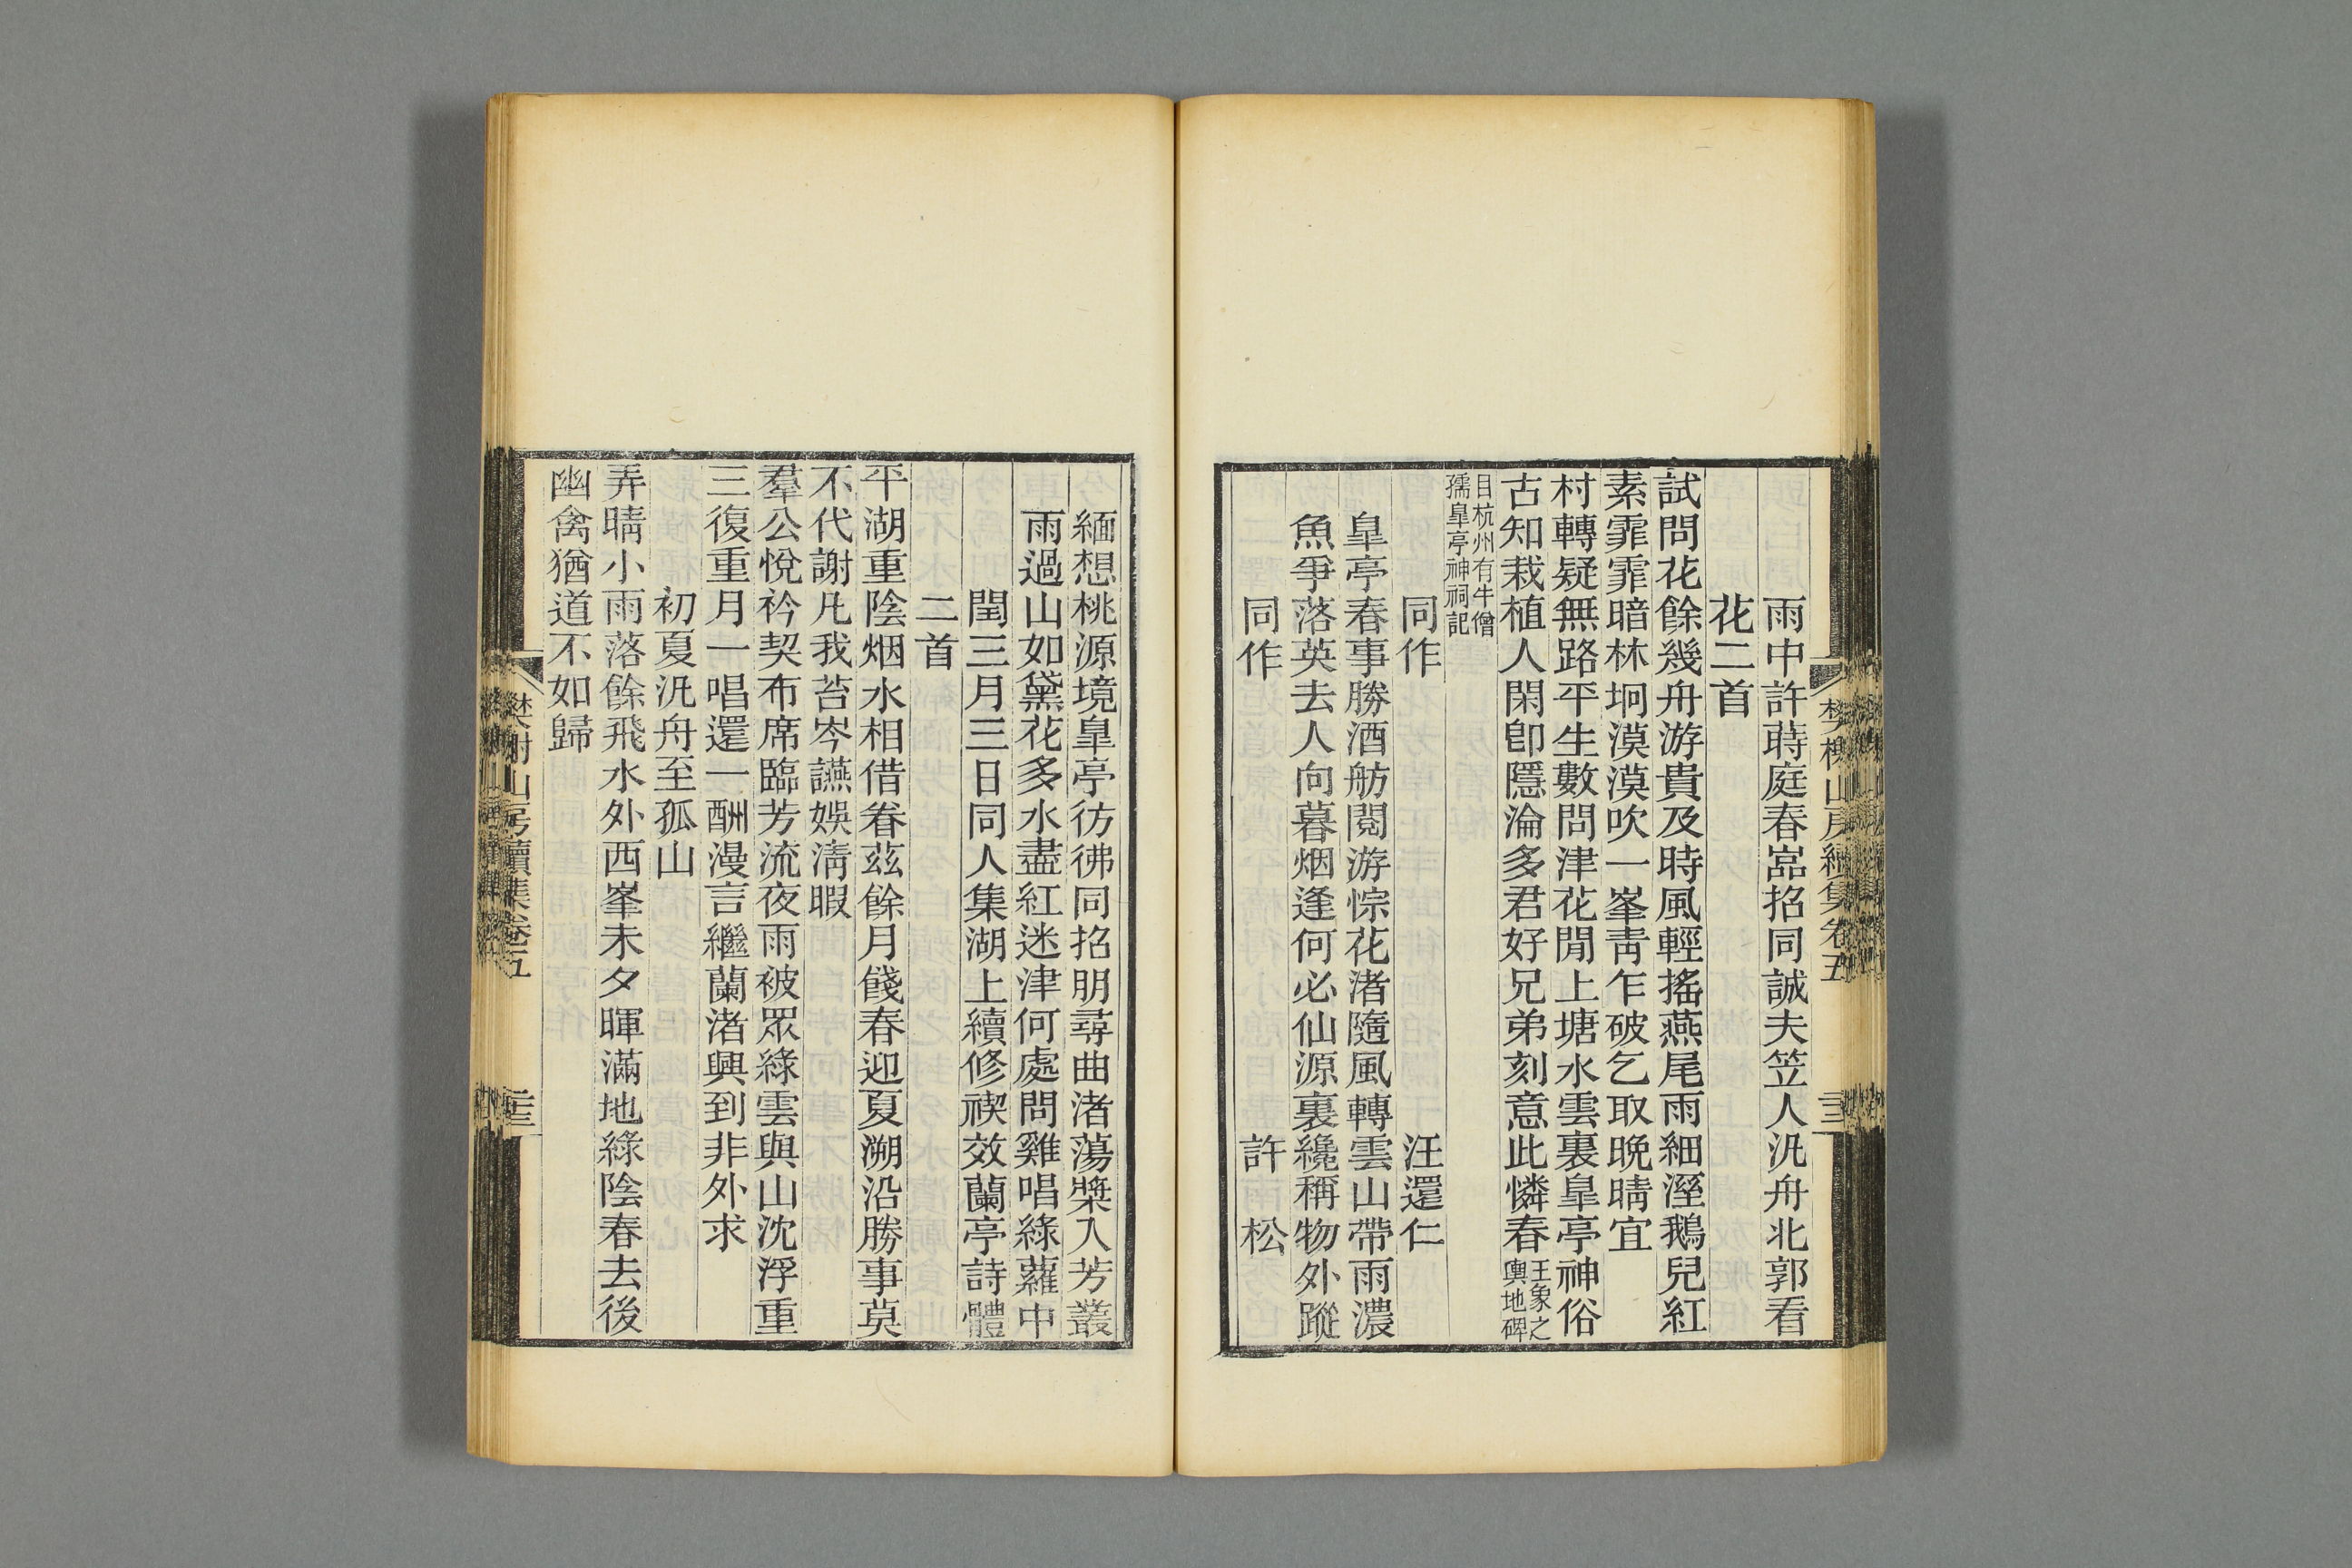 樊榭山房續集卷五
雨中許蒔庭春嵓招同誠夫笠人汎舟北郭看
花二首
試問花餘幾舟游貴及時風輕搖燕尾雨細溼鵝兒紅
素霏霏暗林坰漠漠吹一峯靑乍破乞取晩晴宜
村轉疑無路平生數問津花閒上塘水雲裏皐亭神俗
古知栽植人閑卽隱淪多君好兄弟刻意此憐春王象之輿地碑
目杭州有牛僧孺皐亭神祠記
同作 汪還仁
皐亭春事勝酒舫閱游悰花渚隨風轉雲山帶雨濃
魚爭落英去人向暮烟逢何必仙源裏纔稱物外蹤
同作 許松
緬想桃源境皐亭彷彿同招朋尋曲渚蕩槳入芳叢
雨過山如黛花多水盡紅迷津何處問雞唱綠蘿中
閏三月三日同人集湖上續修禊效蘭亭詩體
二首
平湖重陰烟水相借眷茲餘月餞春迎夏溯沿勝事莫
不代謝凡我苔岑讌娛淸暇
羣公悅衿契布席臨芳流夜雨被眾綠雲與山沈浮重
三復重月一唱還一酬漫言繼蘭渚興到非外求
初夏汎舟至孤山
弄晴小雨落餘飛水外西峯未夕暉滿地綠陰春去後
幽禽猶道不如歸
樊榭山房續集卷五